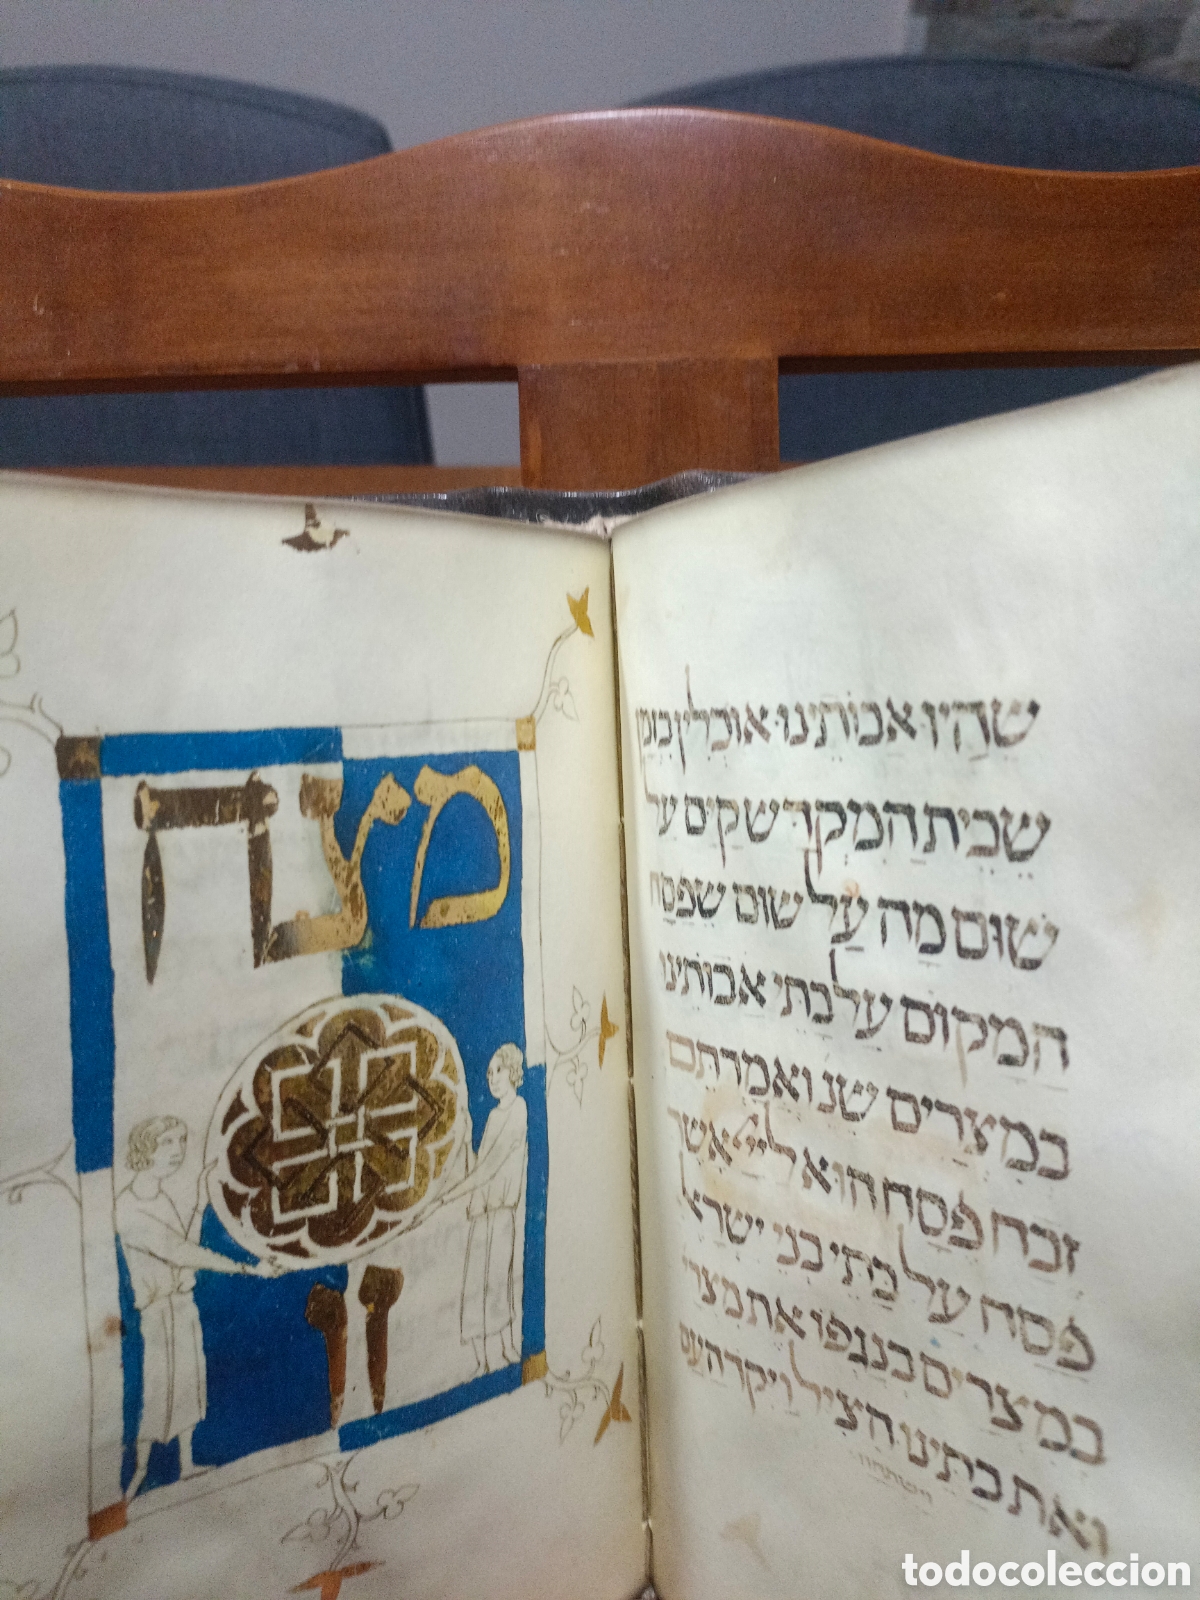 שהיו אבותינו אוכלין בזמן
שבית המקדש קים על
שום מה על שום שפסח
המקום על בתי אבותינו
במצרים שנ ואמרתם
זבח פסח הוא ליי אשר
פסח על בתי בני ישראל
במצרים בנגפו את מצרי
ואת בתינו הציל ויקד העם
וישתחוו
מצה
זו
todocoleccion